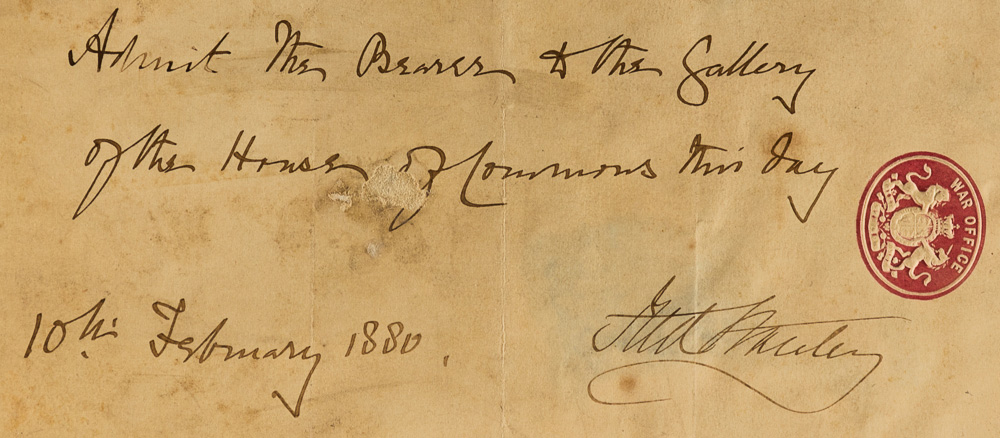 Admit the Bearer to the Gallery
of the House of Commons this day
WAR OFFICE
10th February 1880.
Fred Stanley